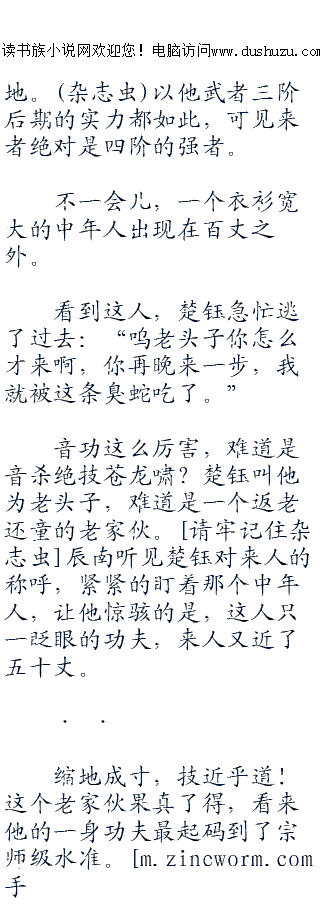 读书族小说网欢迎您！电脑访问www.dushuzu.com
地。(杂志虫)以他武者三阶
后期的实力都如此，可见来
者绝对是四阶的强者。
不一会儿，一个衣衫宽
大的中年人出现在百丈之
外。
看到这人，楚钰急忙逃
了过去：“呜老头子你怎么
才来啊，你再晚来一步，我
就被这条臭蛇吃了。”
音功这么厉害，难道是
音杀绝技苍龙啸？楚钰叫他
为老头子，难道是一个返老
还童的老家伙。[请牢记住杂
志虫]辰南听见楚钰对来人的
称呼，紧紧的盯着那个中年
人，让他惊骇的是，这人只
一眨眼的功夫，来人又近了
五十丈。
． ．
缩地成寸，技近乎道！
这个老家伙果真了得，看来
他的一身功夫最起码到了宗
师级水准。[m.zineworm.com
手